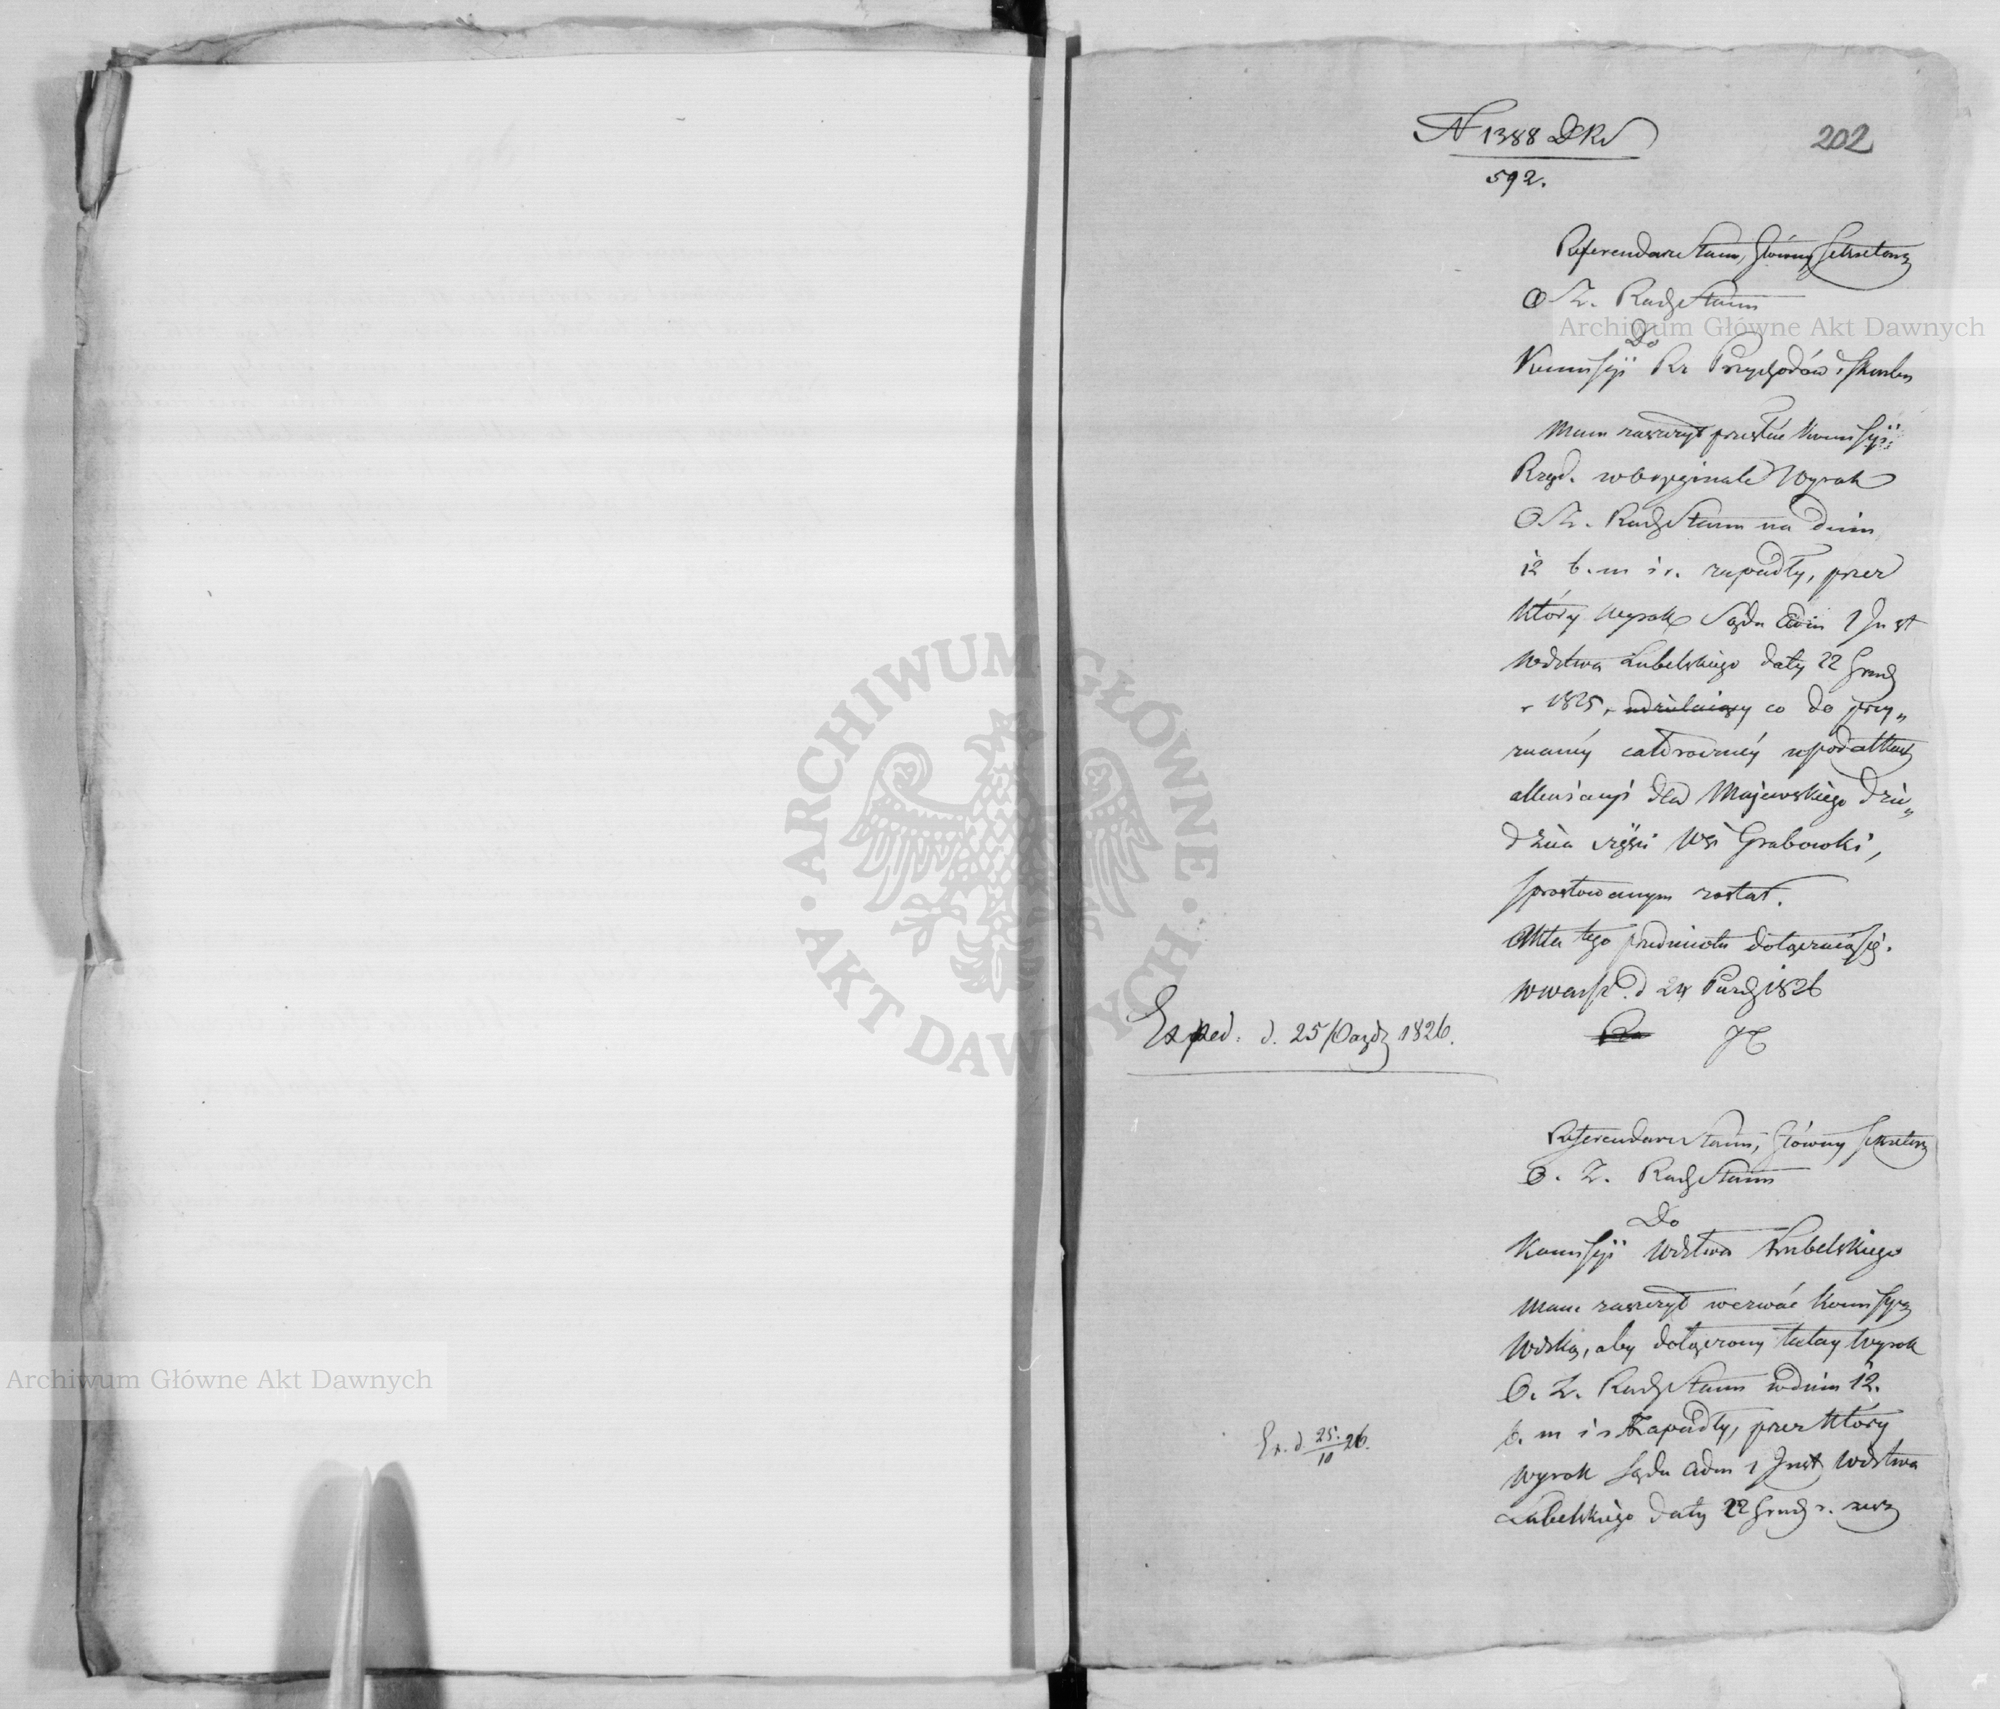 202
N 1388 DKr
592.
Referendarz Stanu, Główny Sekretarz
O. Z. Rady Stanu
Do
Kommissyi Rz Przychodów i Skarbu
Mam zaszczyt przesłać Kommissyi
Rząd. w Oryginale Wyrok
O. Z. Rady Stanu na dniu
12 b. m i r. zapadły, przez
który wyrok Sądu Adm 1 Inst
Wdztwa Lubelskiego daty 22 Grud
r 1825, co do przy„
znaney całoroczney w podatkach
dla Majewskiego dzie„
dzica części Wsi Grabowki,
sprostowanym został.
Akta tego przedmiotu dołączaią się.
w Warsz. d 24 Paźdz 1826
Exped. d. 25 Paźdz 1826.
Referendarz Stanu, Główny Sekretarz
O. Z. Rady Stanu
Do
Kommissyi Wdztwa Lubelskiego
Mam zaszczyt wezwać Kommissyą
Wdzką, aby dołączony tutay Wyrok
O. Z. Rady Stanu w dniu 12.
b. m i r zapadły, przez który
Ex. d. 25./10 26.
wyrok Sądu Adm 1 Inst Wdztwa
Lubelskiego daty 22 Grud r. zesz
Archiwum Główne Akt Dawnych
Archiwum Główne Akt Dawnych
ARCHIWUM GŁÓWNE AKT DAWNYCH